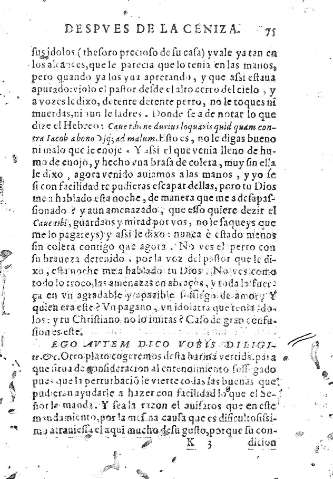 DESPVES DE LA CENIZA. 75
sus idolos (thesoro precioso de su casa) y vale ya tan en
los alcançes, que le parecia que lo tenia en las manos,
pero quando ya los yua apretando, y que assi estaua
apurado: violo el pastor desde el alto cerro del cielo, y
a vozes le dixo, detente detente perro, no le toques ni
muerdas, ni aun le ladres. Donde se a de notar lo que
dize el Hebreo: Caue tibi ne durius loquaris quid quam con-
tra Iacob a bono vsq; ad malum. Esto es, no le digas bueno
ni malo que le enoje. Y assi el que venia lleno de hu-
mo de enojo, y hecho vna brasa de colera, muy sin ella
le dixo, agora venido auiamos a las manos, y yo se
si con facilidad te pudieras escapar dellas, pero tu Dios
me a hablado esta noche, de manera que me a desapas-
sionado y aun amenazado, que esso quiere dezir el
Caue tibi, guardaus y mirad por vos, no le saqueys que
me lo pagareys) y assi le dixo: nunca è estado menos
sin colera contigo que agora. No ves el perro con
su braueza detenido, por la voz del pastor que le di-
xo, esta noche me a hablado tu Dios. No ves como
todo lo troco, las amenazas en abraços, y toda la fuer-
ça en vn agradable y apazible sossiego de amor? Y
quien era este? Vn pagano, vn idolatra que tenia ido-
los: y tu Christiano no lo imitas? Caso de gran confu-
sion es este.
EGO AVTEM DICO VOBIS DILIGI-
te. &c. Otro plato cogeremos desta harina vertida, para
que sirua de consideracion al entendimiento sossegado
pues que la perturbaciõ le vierte todas las buenas que
pudieran ayudarle a hazer con facilidad lo que el Se-
ñor le manda. Y sea la razon el auisaros que en este
mandamiento, por la mesma causa que es dificultosissi-
mo atrauiessa el aqui mucho de su gusto, porque su con-
K 3 dicion